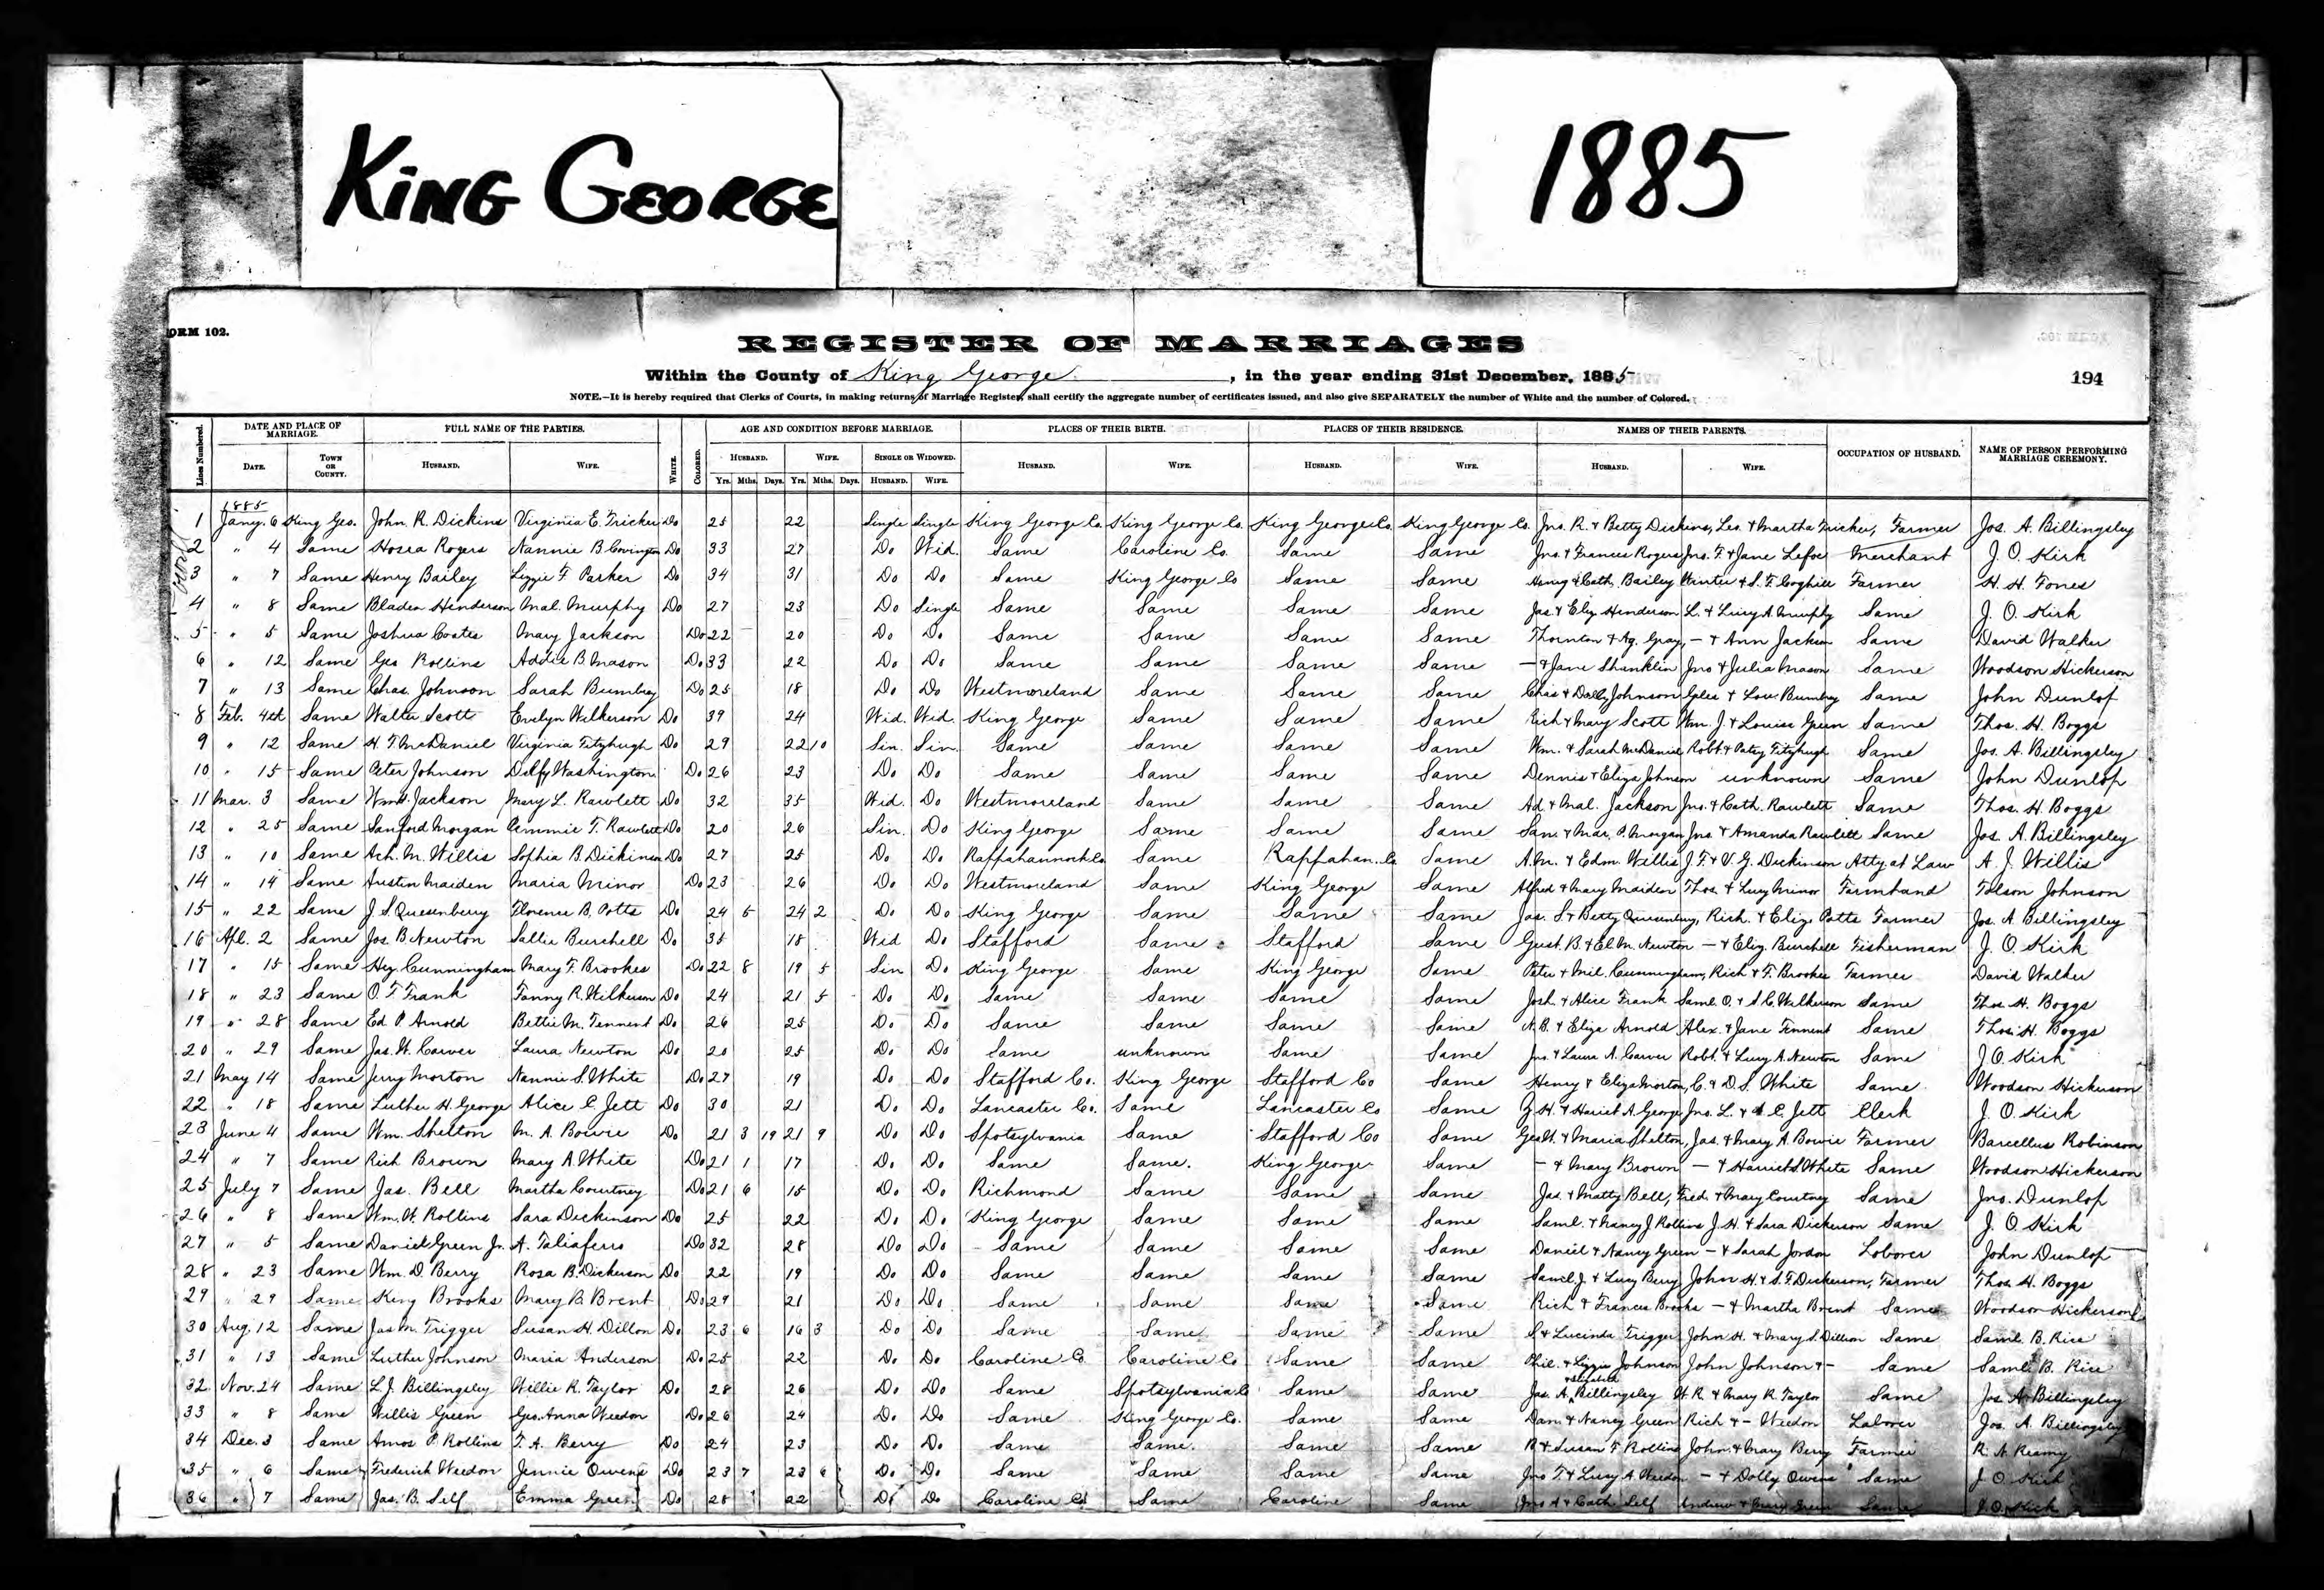 KING GEORGE
1885
ORM 102.
REGISTER OF MARRIAGES
Within the County of King George, in the year ending 31st December, 1885
194
NOTE.—It is hereby required that Clerks of Courts, in making returns of Marriage Register, shall certify the aggregate number of certificates issued, and also give SEPARATELY the number of White and the number of Colored.
Lines Numbered. DATE AND PLACE OF MARRIAGE. FULL NAME OF THE PARTIES. WHITE. COLORED. AGE AND CONDITION BEFORE MARRIAGE. PLACES OF THEIR BIRTH. PLACES OF THEIR RESIDENCE. NAMES OF THEIR PARENTS. OCCUPATION OF HUSBAND. NAME OF PERSON PERFORMING MARRIAGE CEREMONY.
DATE. TOWN OR COUNTY. HUSBAND. WIFE. HUSBAND. WIFE. SINGLE OR WIDOWED. HUSBAND. WIFE. HUSBAND. WIFE. HUSBAND. WIFE.
Yrs. Mths. Days. Yrs. Mths. Days. HUSBAND. WIFE.
1885
1 Jany. 6 King Geo. John R. Dickins Virginia E. Tricker Do 25 22 Single Single King George Co. King George Co. King George Co. King George Co. Jno. R. & Betty Dickins, Leo. & Martha Tricker, Farmer Jos. A. Billingsley
2 " 4 Same Hosea Rogers Nannie B. Covington Do 33 27 Do Wid. Same Caroline Co. Same Same Jno. & Frances Rogers Jno. F. & Jane Lefoe Merchant J. O. Kirk
3 " 7 Same Henry Bailey Lizzie F. Parker Do 34 31 Do Do Same King George Co Same Same Henry & Cath. Bailey & S. F. Coghill Farmer H. H. Fones
4 " 8 Same Bladen Henderson Mal. Murphy Do 27 23 Do Single Same Same Same Same Jas. & Eliz Henderson L. & Lucy A. Murphy Same J. O. Kirk
5 " 5 Same Joshua Coates Mary Jackson Do 22 20 Do Do Same Same Same Same Thornton & Ag. Gray, — & Ann Jackson Same David Walker
6 " 12 Same Geo Rollins Addie B. Mason Do 33 22 Do Do Same Same Same Same — & Jane Shanklin Jno & Julia Mason Same Woodson Hickerson
7 " 13 Same Chas. Johnson Sarah Bumbrey Do 25 18 Do Do Westmoreland Same Same Same Chas & Dolly Johnson Giles & Lou. Bumbrey Same John Dunlop
8 Feb. 4th Same Walter Scott Evelyn Wilkerson Do 39 24 Wid. Wid. King George Same Same Same Rich & Mary Scott Wm. J. & Louisa Green Same Thos. H. Boggs
9 " 12 Same H. T. McDaniel Virginia Fitzhugh Do 29 22 10 Sin. Sin. Same Same Same Same Wm. & Sarah McDaniel Robt. & Patsy Fitzhugh Same Jos. A. Billingsley
10 " 15 Same Peter Johnson Delfy Washington Do 26 23 Do Do Same Same Same Same Dennis & Eliza Johnson unknown Same John Dunlop
11 Mar. 3 Same Wm. Jackson Mary L. Rawlett Do 32 35 Wid. Do Westmoreland Same Same Same Ad. & Mal. Jackson Jno. & Cath. Rawlett Same Thos. H. Boggs
12 " 25 Same Sanford Morgan Ammie T. Rawlett Do 20 26 Sin. Do King George Same Same Same San. & Mar. P. Morgan Jno. & Amanda Rawlett Same Jos. A. Billingsley
13 " 10 Same Ach. M. Willis Sophia B. Dickinson Do 27 25 Do Do Rappahannock Co Same Rappahan. Co Same A. M. & Edm. Willis J. F. & V. G. Dickinson Atty. at Law A. J. Willis
14 " 14 Same Austin Maiden Maria Minor Do 23 26 Do Do Westmoreland Same King George Same Alfred & Mary Maiden Thos. & Lucy Minor Farmhand Tolson Johnson
15 " 22 Same J. S. Quesenberry Florence B. Potts Do 24 5 24 2 Do Do King George Same Same Same Jas. S. & Betty Quesenberry, Rich. & Eliz. Potts Farmer Jos. A. Billingsley
16 Apl. 2 Same Jos. B. Newton Sallie Burchell Do 35 18 Wid Do Stafford Same Stafford Same Gust. B. & El. M. Newton — & Eliz. Burchell Fisherman J. O. Kirk
17 " 15 Same Hez. Cunningham Mary F. Brookes Do 22 8 19 5 Sin Do King George Same King George Same Peter & Mil. Cunningham, Rich & F. Brookes Farmer David Walker
18 " 23 Same O. F. Frank Fanny R. Wilkerson Do 24 21 5 Do Do Same Same Same Same Josh & Alice Frank Saml. O. & S. C. Wilkerson Same Thos. H. Boggs
19 " 28 Same Ed. P. Arnold Bettie M. Tennent Do 26 25 Do Do Same Same Same Same N. B. & Eliza Arnold Alex. & Jane Tennent Same Thos. H. Boggs
20 " 29 Same Jas. W. Carver Laura Newton Do 20 25 Do Do Same unknown Same Same Jno. & Laura A. Carver Robt. & Lucy A. Newton Same J. O. Kirk
21 May 14 Same Jerry Morton Nannie S. White Do 27 19 Do Do Stafford Co. King George Stafford Co Same Henry & Eliza Morton, C. & D. S. White Same Woodson Hickerson
22 " 18 Same Luther H. George Alice C. Jett Do 30 21 Do Do Lancaster Co. Same Lancaster Co Same Z. H. & Hariet A. George, Jno. L. & A. C. Jett Clerk J. O. Kirk
23 June 4 Same Wm. Shelton M. A. Bowie Do 21 3 19 21 9 Do Do Spotsylvania Same Stafford Co Same Geo. W. & Maria Shelton, Jas. & Mary A. Bowie Farmer Barcellus Robinson
24 " 7 Same Rich Brown Mary A. White Do 21 1 17 Do Do Same Same. King George Same — & Mary Brown — & Harriet S. White Same Woodson Hickerson
25 July 7 Same Jas. Bell Martha Courtney Do 21 6 15 Do Do Richmond Same Same Same Jas. & Matty Bell, Fred. & Mary Courtney Same Jno. Dunlop
26 " 8 Same Wm. W. Rollins Sara Dickinson Do 25 22 Do Do King George Same Same Same Saml. & Nancy J. Rollins J. H. & Sara Dickerson Same J. O. Kirk
27 " 5 Same Daniel Green Jr. A. Taliaferro Do 32 28 Do Do Same Same Same Same Daniel & Nancy Green — & Sarah Jordon Loborer John Dunlop
28 " 23 Same Wm. D. Berry Rosa B. Dickerson Do 22 19 Do Do Same Same Same Same Saml. J. & Lucy Berry John H. & S. F. Dickerson, Farmer Thos. H. Boggs
29 " 29 Same King Brooks Mary B. Brent Do 29 21 Do Do Same Same Same Same Rich & Frances Brooks — & Martha Brent Same Woodson Hickerson
30 Aug. 12 Same Jas. M. Trigger Susan H. Dillon Do 23 6 16 3 Do Do Same Same Same Same S. & Lucinda Trigger John H. & Mary S. Dillion Same Saml. B. Rice
31 " 13 Same Luther Johnson Maria Anderson Do 25 22 Do Do Caroline Co Caroline Co Same Same Phil. & Lizzie Johnson John Johnson & — Same Saml. B. Rice
32 Nov. 24 Same L. J. Billingsley Willie R. Taylor Do 28 26 Do Do Same Spotsylvania Co Same Same Jas. A. Billingsley W. R. & Mary R. Taylor Same Jos. A. Billingsley
33 " 8 Same Willis Green Geo. Anna Weedon Do 26 24 Do Do Same King George Co. Same Same Dan. & Nancy Green Rich & — Weedon Laborer Jos. A. Billingsley
34 Dec. 3 Same Amos P. Rollins T. A. Berry Do 24 23 Do Do Same Same. Same Same R. & Susan F. Rollins John & Mary Berry Farmer R. A. Reamy
35 " 6 Same Frederick Weedon Jennie Owens Do 23 7 23 6 Do Do Same Same Same Same Jno T. & Lucy A. Weedon — & Dolly Owens Same J. O. Kirk
36 " 7 Same Jas. B. Self Emma Green Do 28 22 Do Do Caroline Co. Same Caroline Same Jno A. & Cath. Self Andrew & Mary Green Same J. O. Kirk